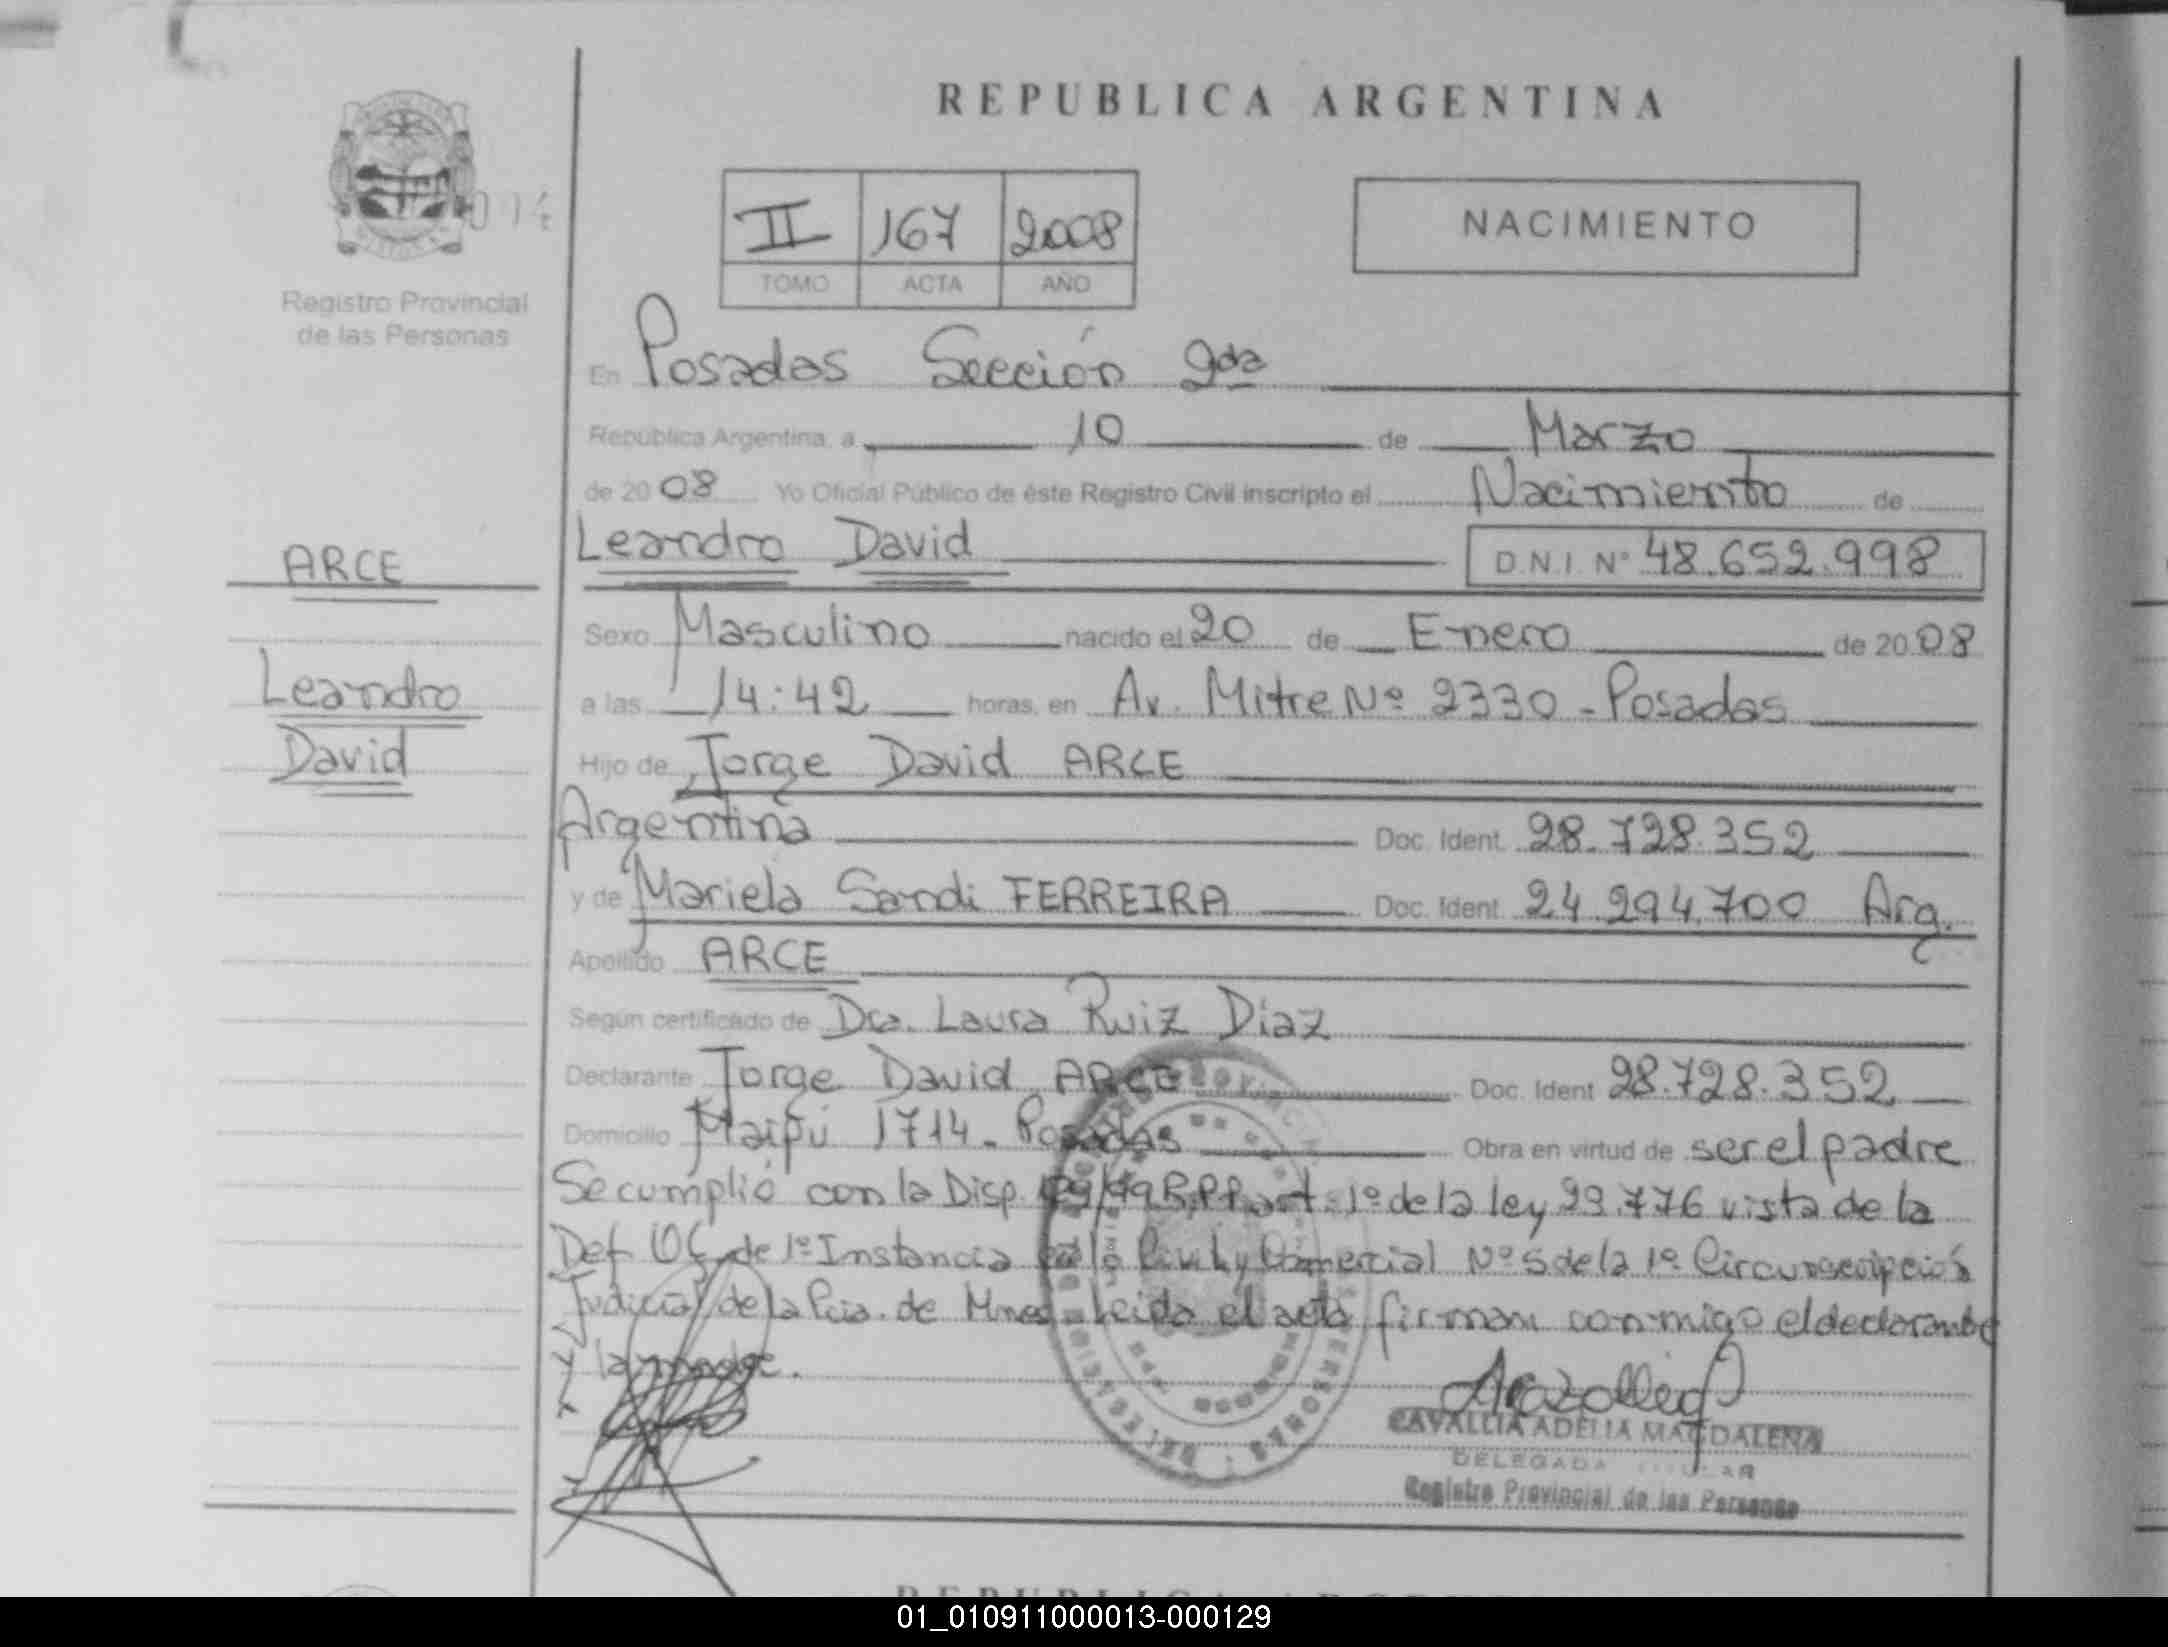 REPUBLICA ARGENTINA
II 167 2008
TOMO ACTA AÑO
NACIMIENTO
Registro Provincial
de las Personas
En Posadas Sección 2da
República Argentina, a 10 de Marzo
de 2008 Yo Oficial Público de éste Registro Civil inscripto el Nacimiento de
ARCE
Leandro David D.N.I. Nº 48.652.998
Sexo Masculino nacido el 20 de Enero de 2008
Leandro
a las 14:42 horas, en Av. Mitre Nº 2330 - Posadas
David
Hijo de Jorge David ARCE
Argentina Doc. Ident. 28.728.352
y de Mariela Sandi FERREIRA Doc. Ident. 24.294.700 Arg.
Apellido ARCE
Según certificado de Dra. Laura Ruiz Diaz
Declarante Jorge David ARCE Doc. Ident. 28.728.352
Domicilio Maipú 1714 - Posadas Obra en virtud de ser el padre
Se cumplió con la Disp. art. 1º de la ley 29.776 vista de la
Def de 1º Instancia Civil y Comercial Nº 5 de la 1º Circunscripción
Judicial de la Pcia. de Mnes. Leida el acta firman conmigo el declarante
y la madre.
CAVALLIA ADELIA MAGDALENA
DELEGADA TITULAR
Registro Provincial de las Personas
01_010911000013-000129